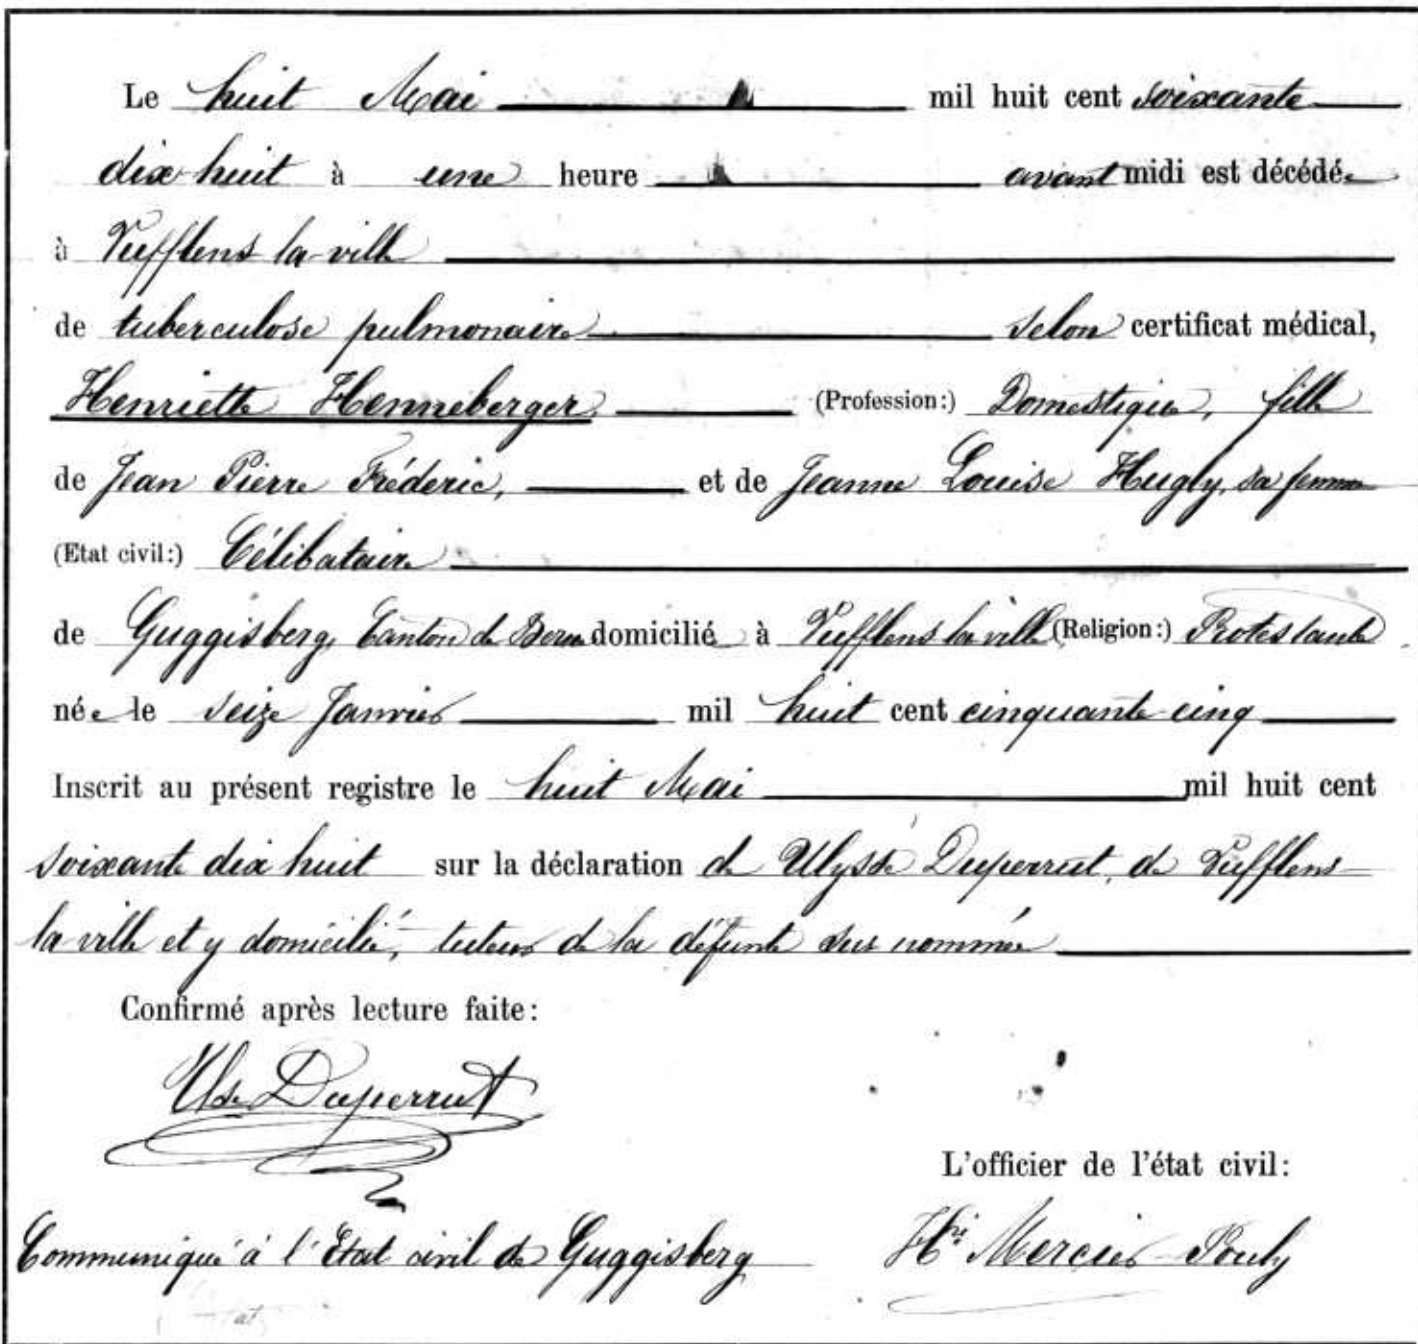 Le huit Mai mil huit cent soixante
dix huit à une heure avant midi est décédée
à Vufflens la ville
de tuberculose pulmonaire selon certificat médical,
Henriette Henneberger, (Profession:) Domestique, fille
de Jean Pierre Fréderic, et de Jeanne Louise Hugly, sa femme
(Etat civil:) Célibataire
de Guggisberg, Canton de Berne domicilié à Vufflens la ville (Religion:) Protestante
née le seize Janvier mil huit cent cinquante cinq
Inscrit au présent registre le huit Mai mil huit cent
soixante dix huit sur la déclaration de Ulysse Duperrut, de Vufflens
la ville et y domicilié, tuteur de la défunte sus nommée
Confirmé après lecture faite:
Use Duperrut
L'officier de l'état civil:
Communiqué à l'Etat civil de Guggisberg
Hri Mercier-Pouly